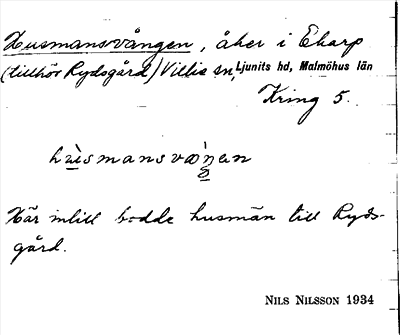 Husmansvången, åker i Ekarp
(tillhör Rydsgård) Villie sn, Ljunits hd, Malmöhus län
Kring 5.
hùsmansvaŋ̀en
Här intill bodde husmän till Ryds-
gård.
NILS NILSSON 1934